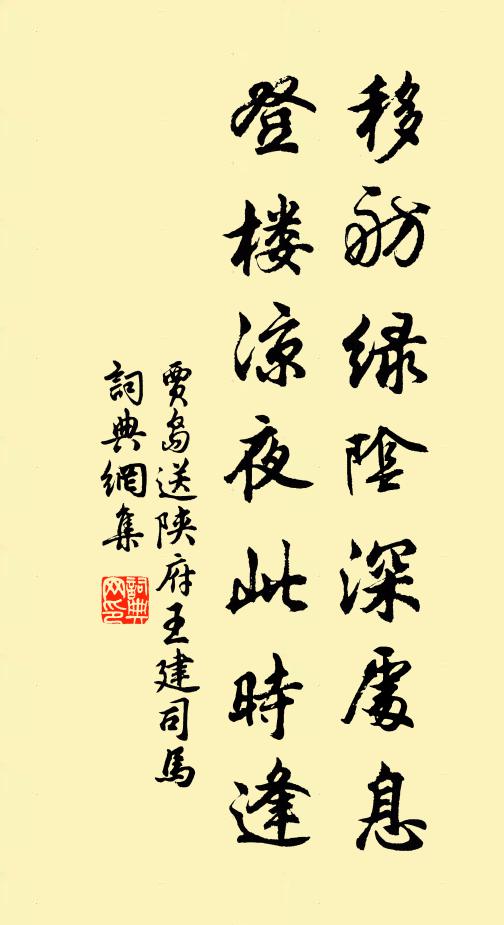 移舫緑陰深處息
登楼凉夜此時逢
賈島送陝府王建司馬
詞典網集
詞典網印